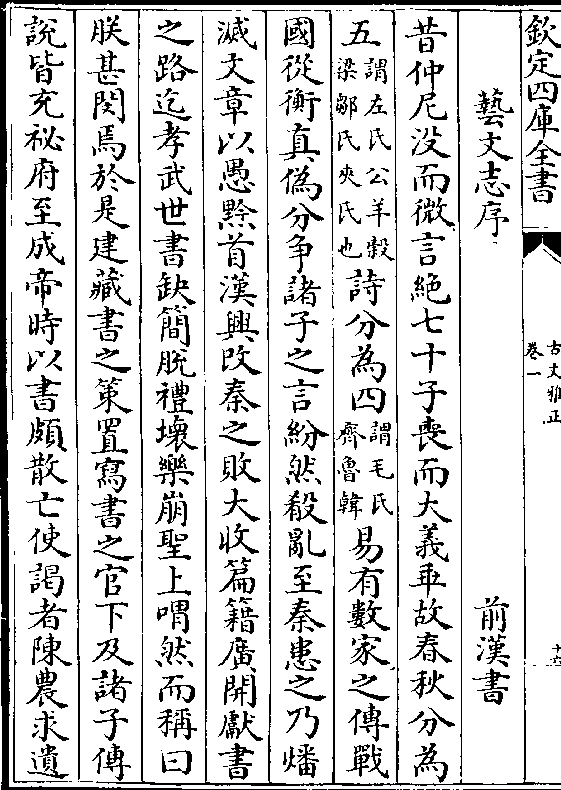 欽定四庫全書
古文雅正
卷一
藝文志序 前漢書
昔仲尼没而微言絶七十子喪而大義乖故春秋分為
五謂左氏公羊榖梁鄒氏夾氏也詩分為四謂毛氏齊魯韓易有數家之傳戰
國從衡真偽分争諸子之言紛然殽亂至秦患之乃燔
滅文章以愚黔首漢興改秦之敗大收篇籍廣開獻書
之路迄孝武世書缺簡脱禮壞樂崩聖上喟然而稱曰
朕甚閔焉於是建藏書之策置寫書之官下及諸子傳
說皆充祕府至成帝時以書頗散亡使謁者陳農求遺